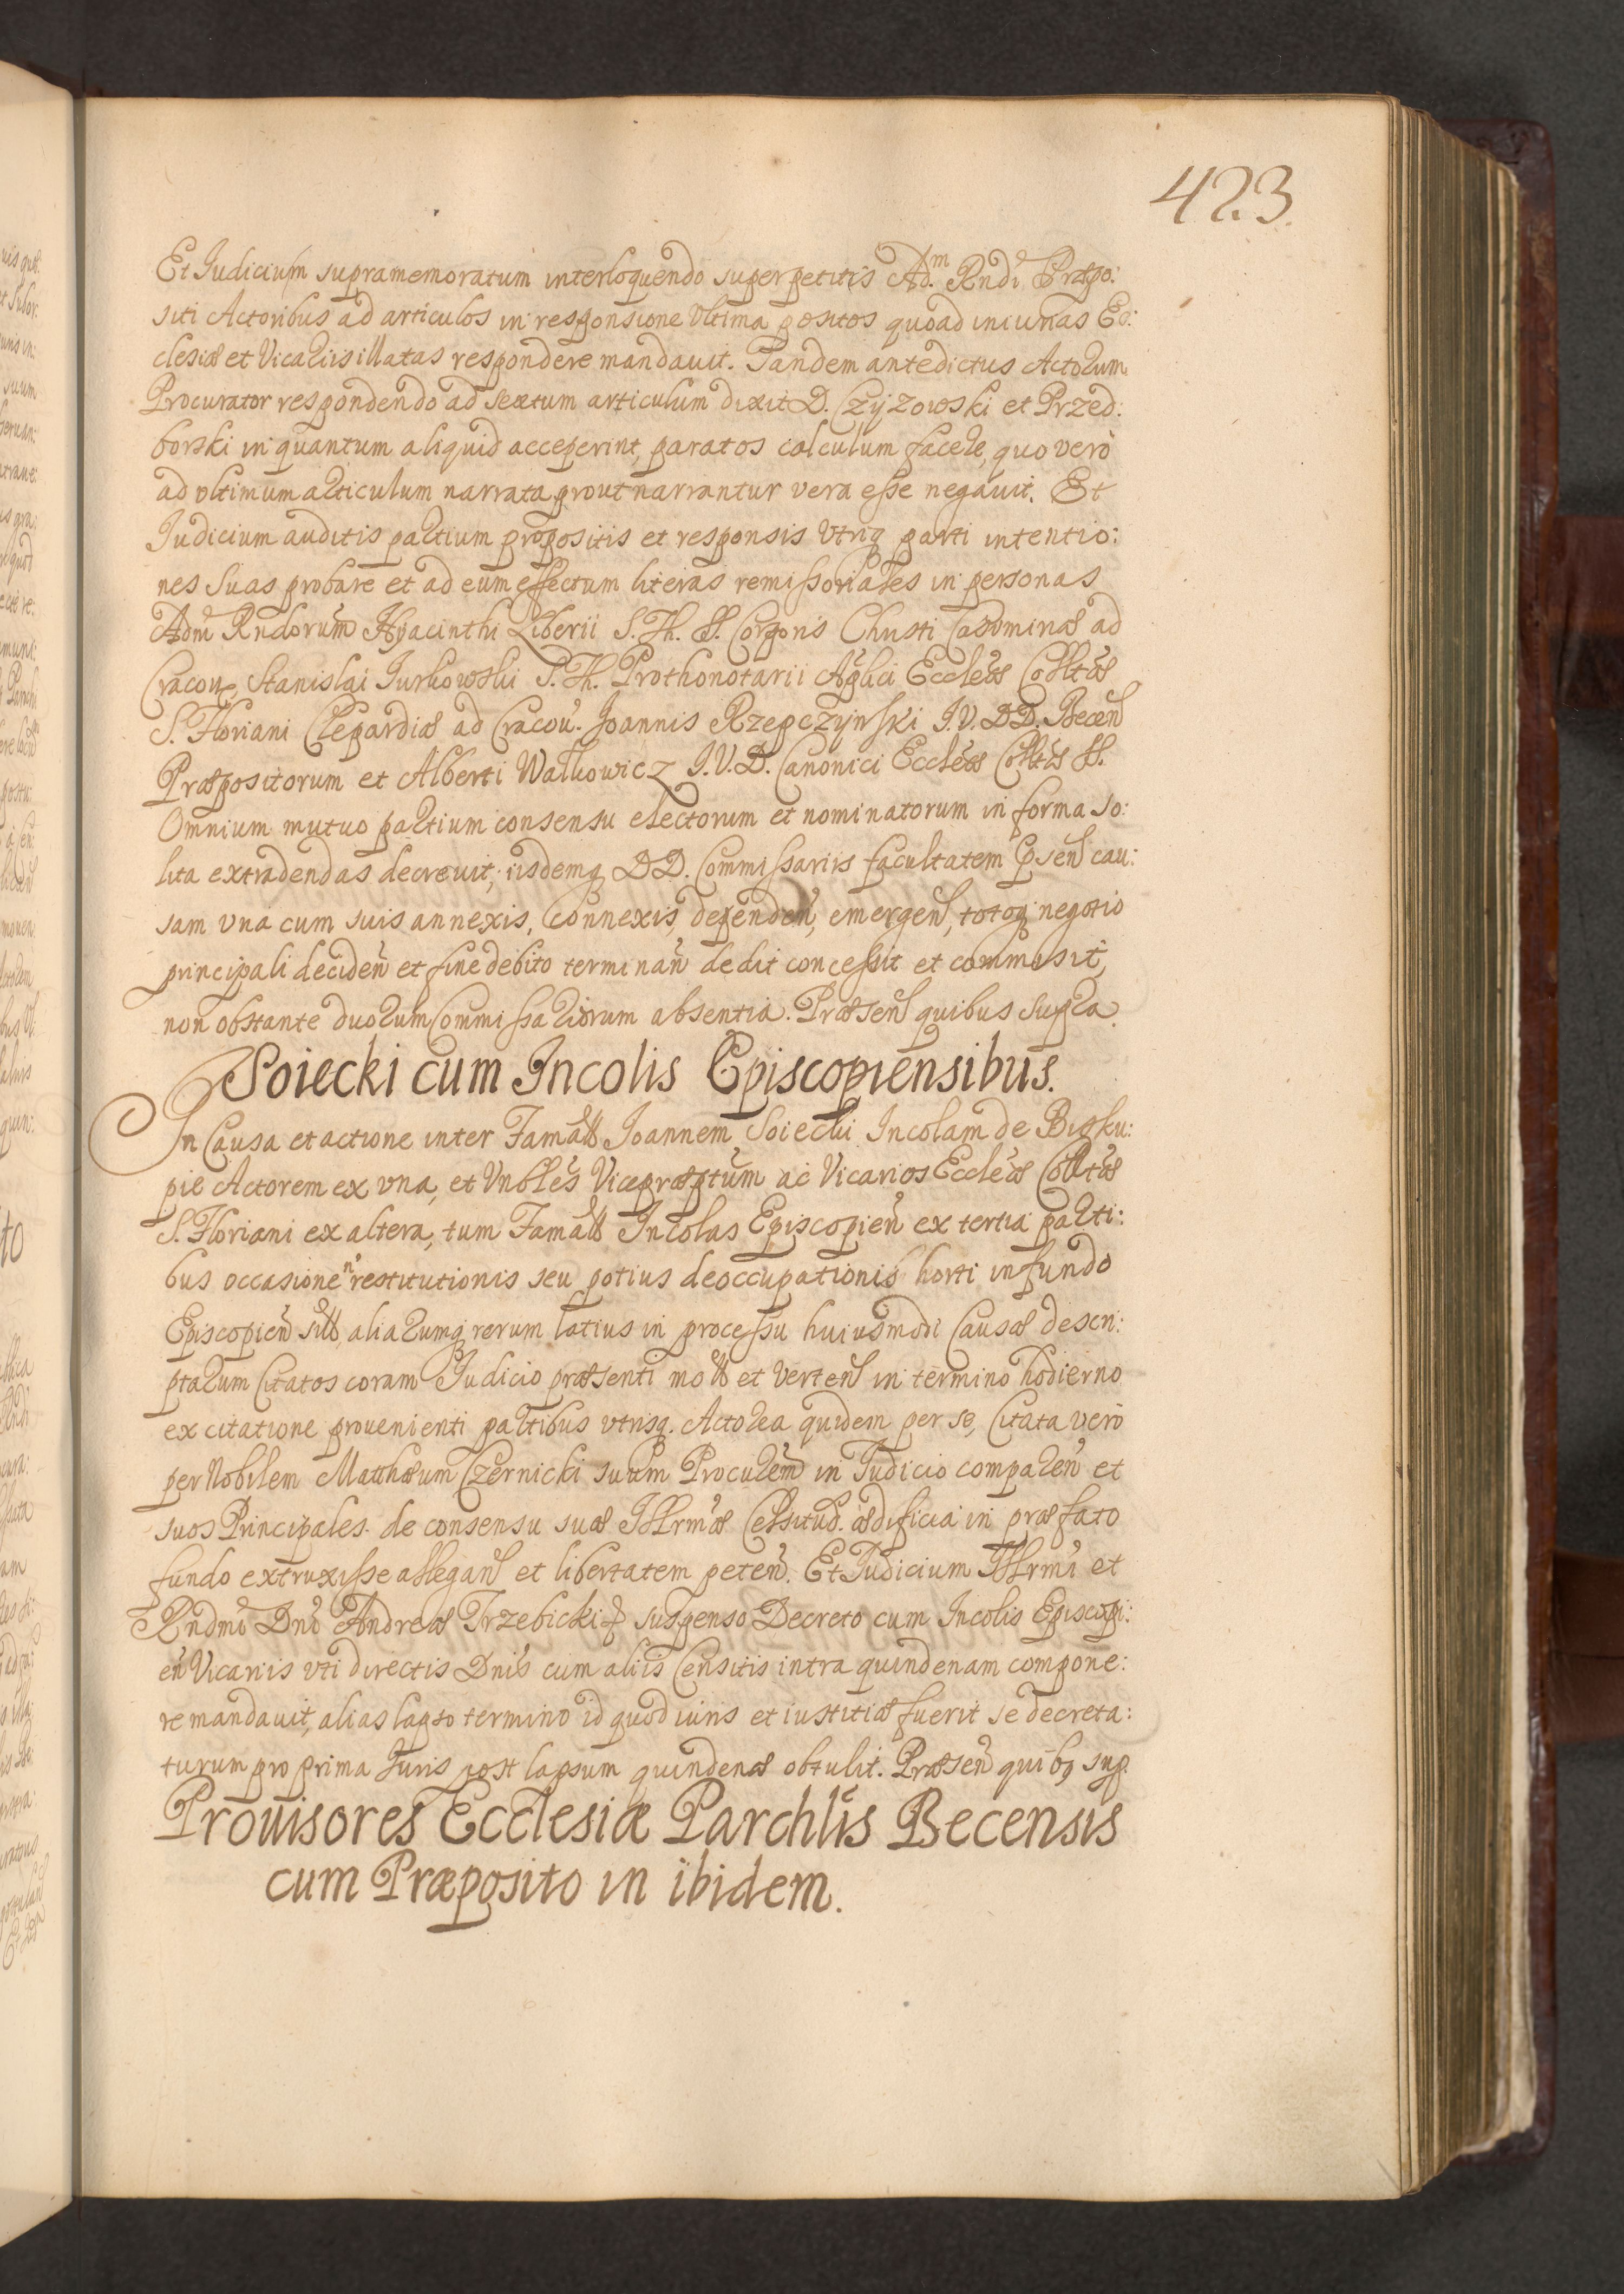 423.
Et Judicium supramemoratum interloquendo super petitis Adm. Rndi Præpo:
siti Actoribus ad articulos in responsione vltima positos quoad iniurias Ec:
clesiæ et Vicariis illatas respondere mandauit. Tandem antedictus Actorum
Procurator respondendo ad sextum articulum dixit D. Czyzowski et Przed:
borski in quantum aliquid acceperint, paratos calculum facere, quo verò
ad vltimum articulum narrata prout narrantur vera esse negauit. Et
Judicium auditis partium propositis et responsis vtriq parti intentio:
nes suas probare et ad eum effectum literas remissoriales in personas
Adm Rndorum Hyacinthi Liberii S. Th. D. Corporis Christi Casimiriæ ad
Cracou, Stanislai Jurkowski S. Th. Prothonotarii Aplici Eccleæ Colltæ
S. Floriani Clepardiæ ad Cracou. Joannis Rzepczynski J. V. DD. Becen
Præpositorum et Alberti Walkowicz J.V.D. Canonici Eccleæ Colltæ SS.
Omnium mutuo partium consensu electorum et nominatorum in forma so:
lita extradendas decreuit, iisdemq DD. Commissariis facultatem Psen cau:
sam vna cum suis annexis, connexis, dependen, emergen, totoq negotio
principali deciden et fine debito terminan dedit concessit et commisit,
non obstante duorum Commissariorum absentia. Præsen quibus supra.
Soiecki cum Incolis Episcopiensibus.
In Causa et actione inter Famatt Joannem Soiecki Incolam de Bisku:
pie Actorem ex vna, et Vnbles Vicepræptum ac Vicarios Eccleæ Colltæ
S. Floriani ex altera, tum Famatt Incolas Episcopien ex tertia parti:
bus occasione restitutionis seu potius deoccupationis horti in fundo
Episcopien sitt, aliarumq rerum latius in processu huiusmodi Causæ descri:
ptarum Citatos coram Judicio præsenti mott et verten in termino hodierno
ex citatione prouenienti partibus vtrisq. Actorea quidem per se, Citata verò
per Nobilem Matthæum Czernicki suum Procurem in Judicio comparen et
suos Principales de consensu suæ Illrmæ Celsitud. ædificia in præfato
fundo extruxisse allegan et libertatem peten. Et Judicium Illrmi et
Rndmi Dni Andreæ Trzebicki suspenso Decreto cum Incolis Episcopi:
en Vicariis vti directis Dnis cum aliis Censitis intra quindenam compone:
re mandauit, alias lapso termino id quod iuris et iustitiæ fuerit se decreta:
turum pro prima Juris post lapsum quindenæ obtulit. Præsen quibq sup.
Prouisores Ecclesiæ Parchlis Becensis
cum Præposito in ibidem.